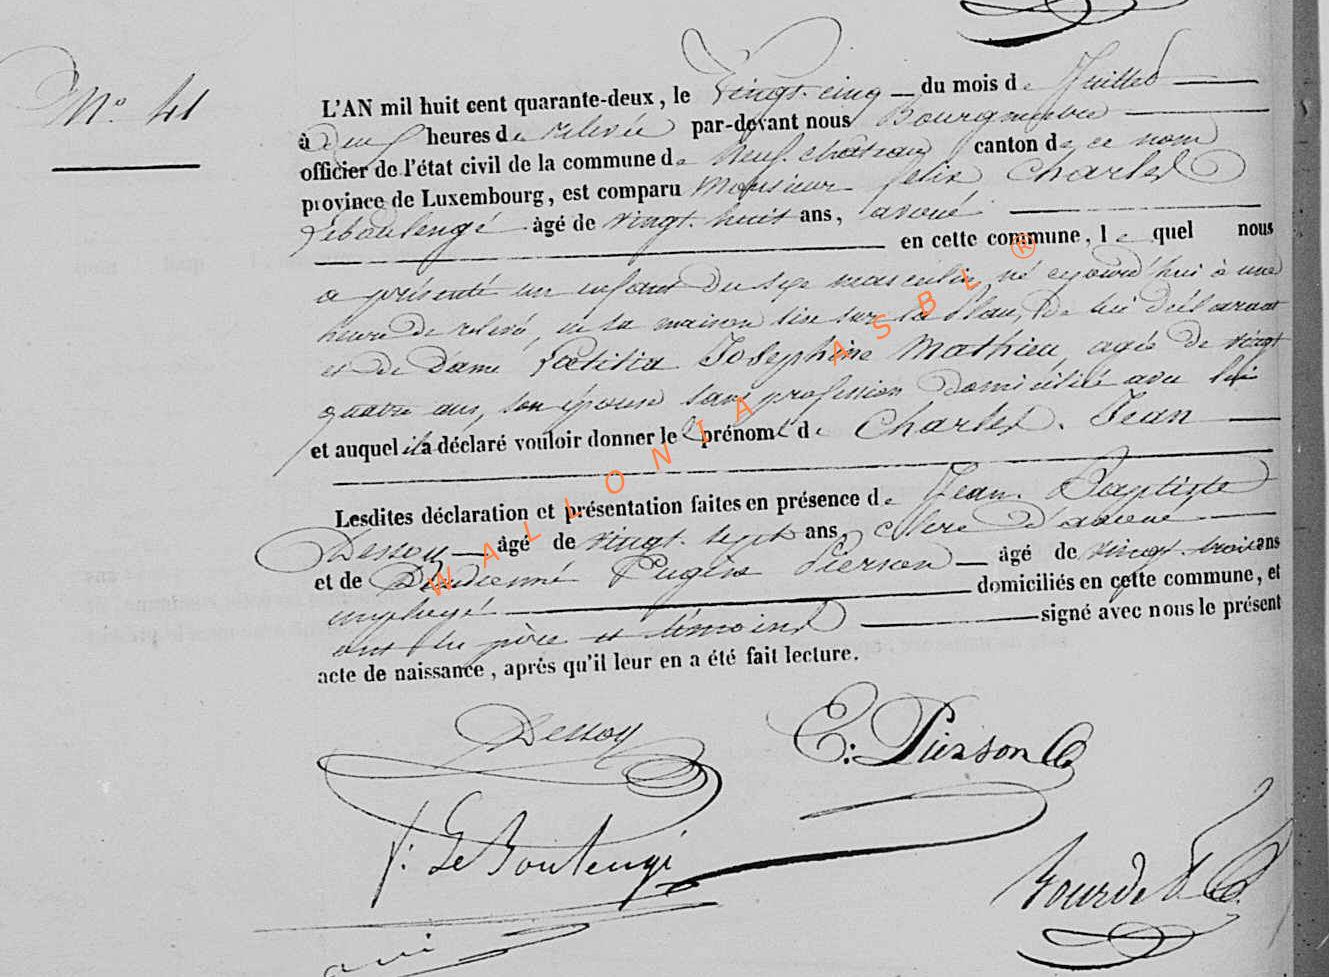 N° 41
L'AN mil huit cent quarante-deux, le Vingt-cinq du mois de Juillet
à Deux heures de relevée par-devant nous Bourgmestre
officier de l'état civil de la commune de Neufchateau canton de ce nom
province de Luxembourg, est comparu Monsieur Felix Charles
Leboulengé âgé de vingt-huit ans, avoué
en cette commune, lequel nous
a présenté un enfant du sexe masculin, né cejourd'hui à une
heure de relevée, en sa maison sise sur la place, de lui déclarant
et de Dame Laetitia Joséphine Mathieu agée de vingt
quatre ans, son épouse sans profession domiciliée avec lui
et auquel il a déclaré vouloir donner le prénom de Charles. Jean
Lesdites déclaration et présentation faites en présence de Jean-Baptiste
Dessoy âgé de vingt-sept ans, clerc d'avoué
et de Dieudonné Eugène Pierson âgé de vingt-trois ans
employé domiciliés en cette commune, et
ont les père et témoins signé avec nous le présent
acte de naissance, après qu'il leur en a été fait lecture.
Dessoy
E: Pierson
f: Le Boulengé
WALLONIA ASBL ®